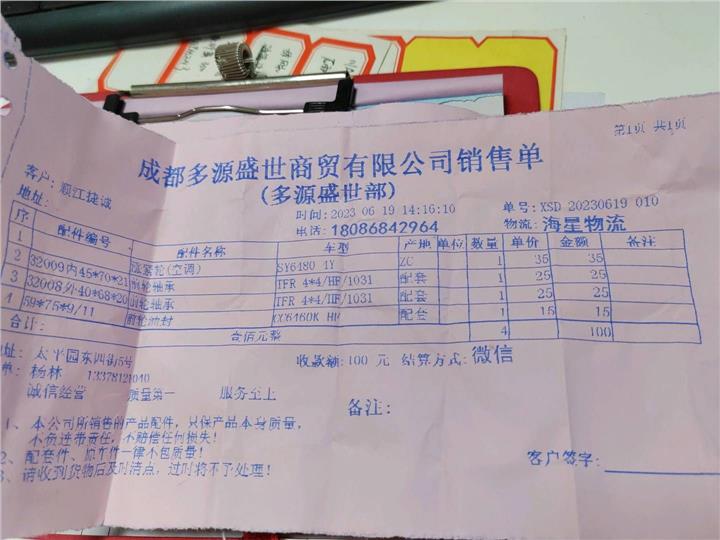 第1页 共1页
成都多源盛世商贸有限公司销售单
(多源盛世部)
客户: 顺江捷诚
地址:
时间:2023 06 19 14:16:10
单号:XSD 20230619 010
电话: 18086842964
物流: 海星物流
序 配件编号 配件名称 车型 产地 单位 数量 单价 金额 备注
1 涨紧轮(空调) SY6480 4Y ZC 1 35 35
2 32009内45*70*21 轮轴承 TFR 4*4/HF/1031 配套 1 25 25
3 32008外40*68*20 轮轴承 TFR 4*4/HF/1031 配套 1 25 25
4 59*75*9/11 轮油封 CC6460K 配套 1 15 15
合计: 壹佰元整 4 100
地址: 太平园东四街5号
收款额:100 元 结算方式: 微信
单: 杨林 13378121040
诚信经营 质量第一 服务至上
备注:
1、本公司所销售的产品配件, 只保产品本身质量,
不负连带责任, 不赔偿任何损失!
2、配套件、原车件一律不包质量!
3、请收到货物后及时清点, 过时将不予处理!
客户签字: